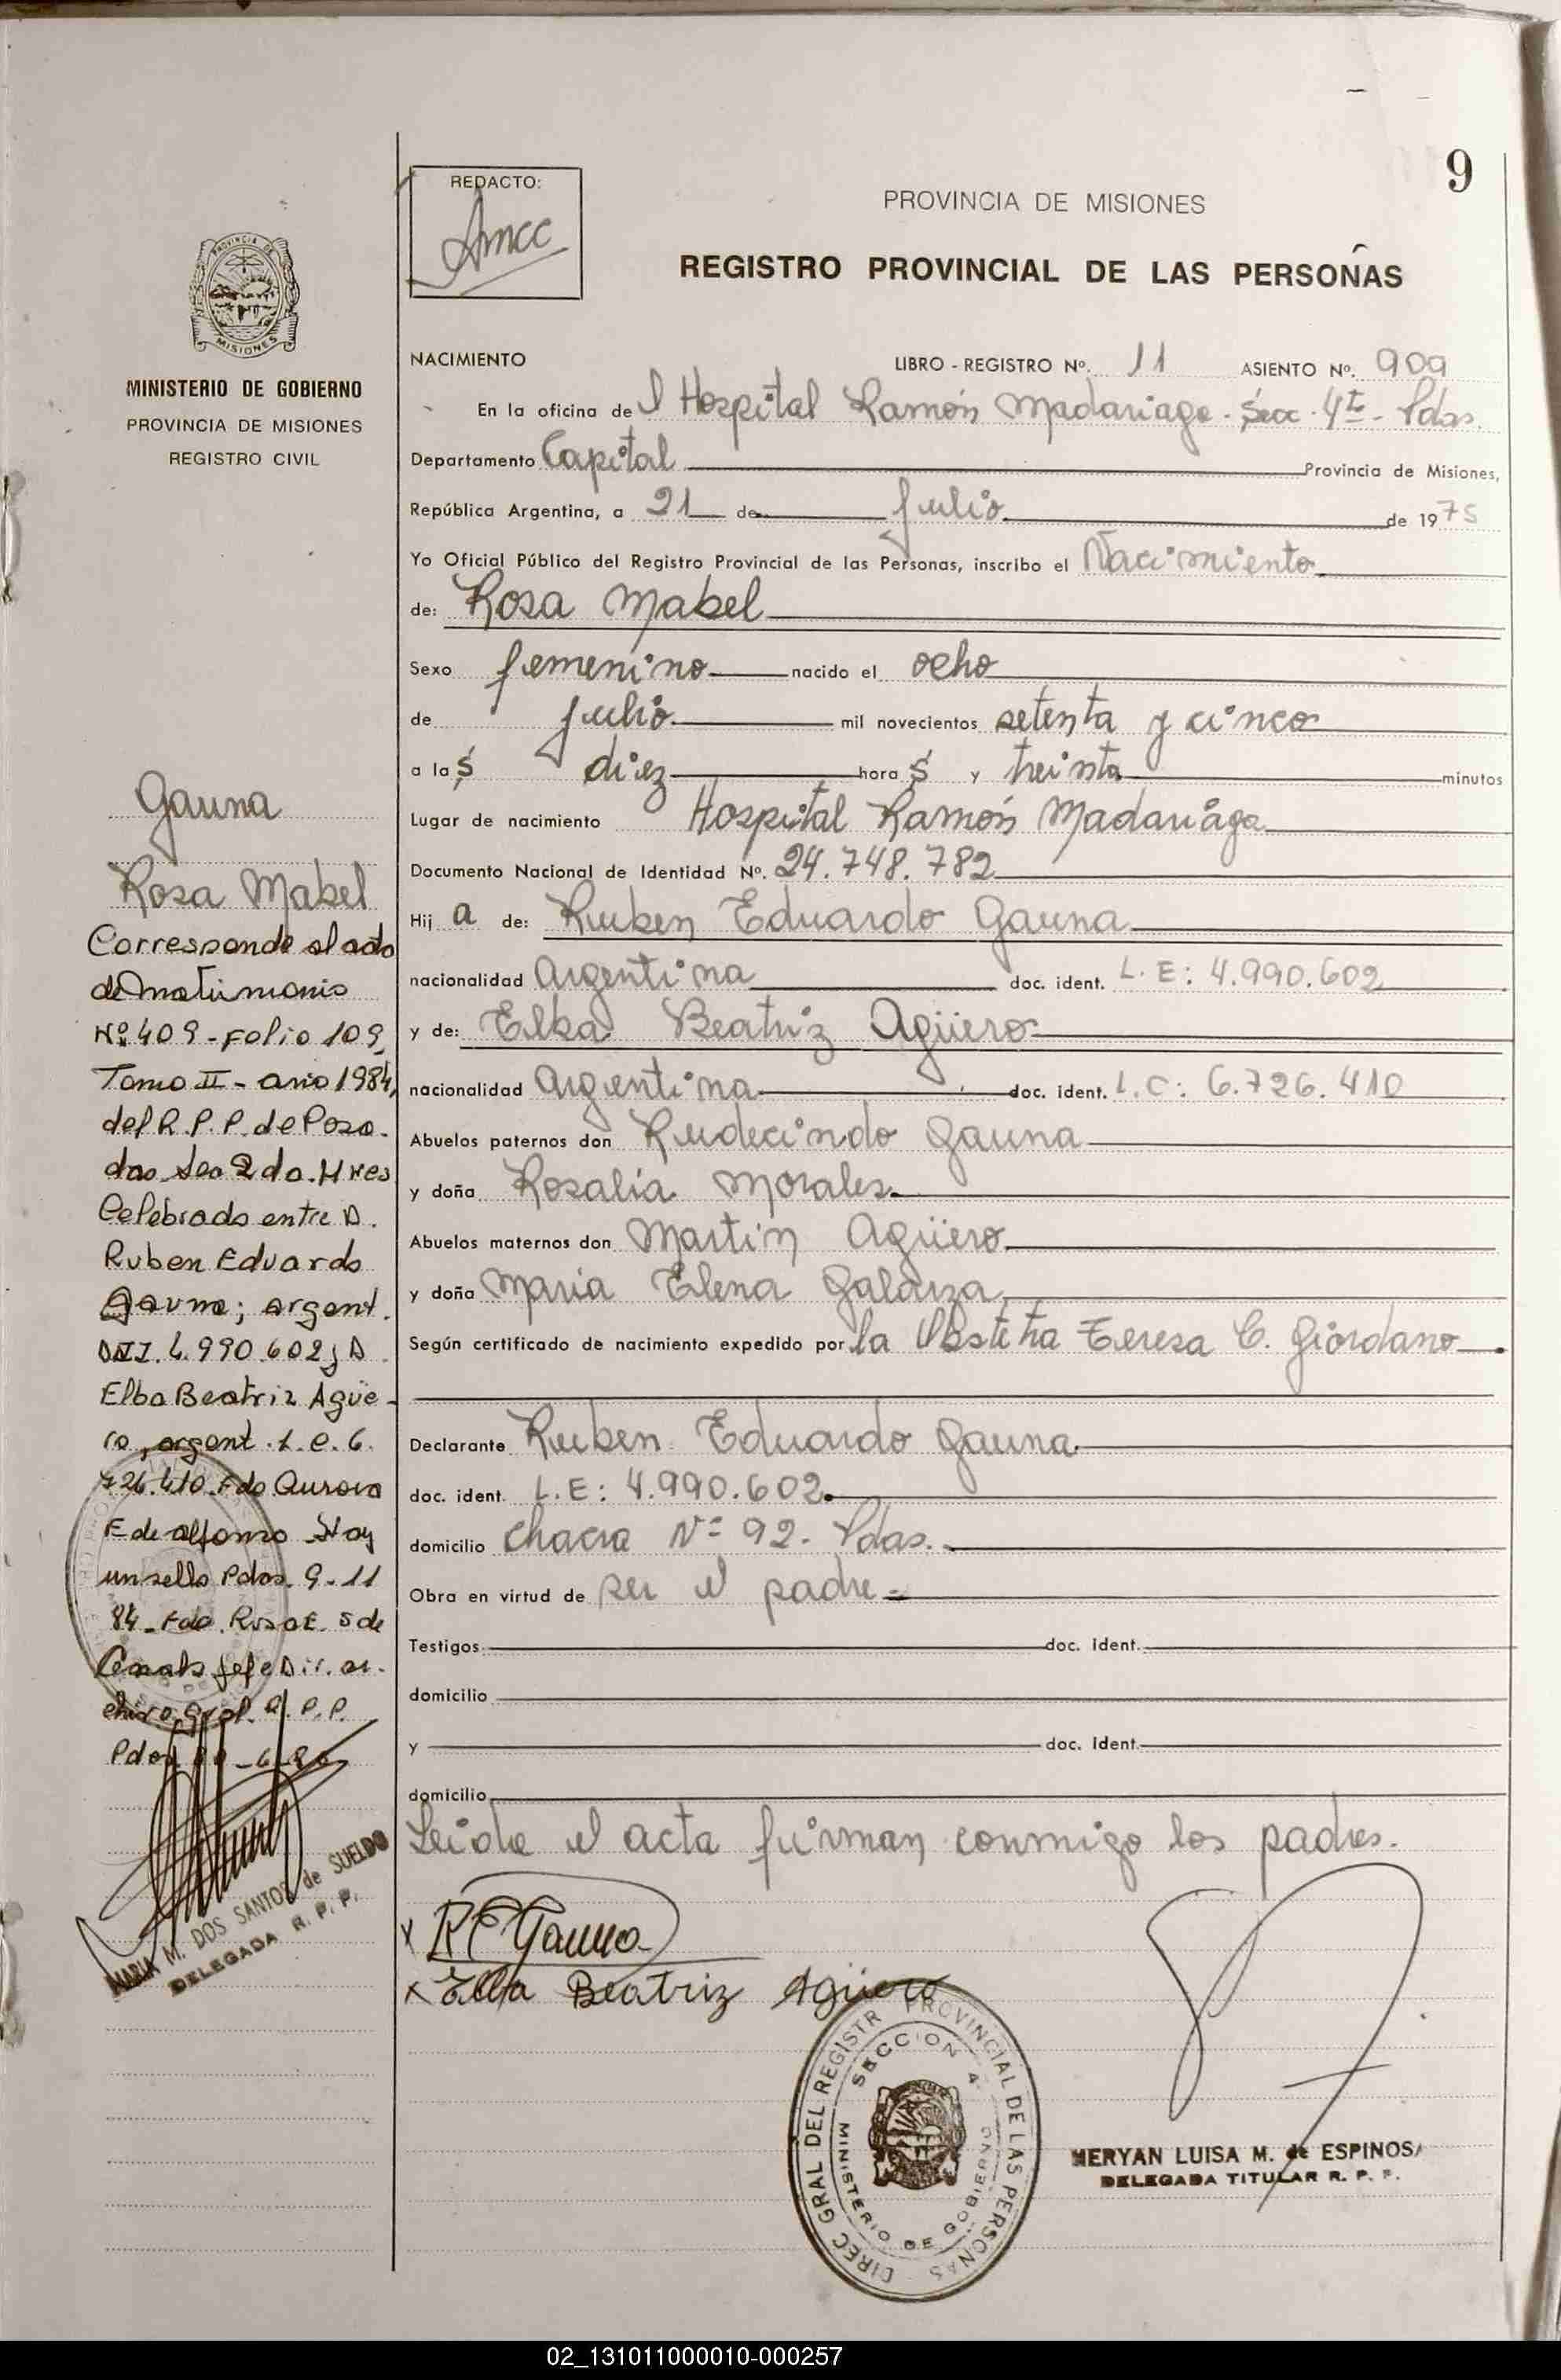 9
REDACTO:
Amcc
PROVINCIA DE MISIONES
REGISTRO PROVINCIAL DE LAS PERSONAS
MINISTERIO DE GOBIERNO
PROVINCIA DE MISIONES
REGISTRO CIVIL
NACIMIENTO LIBRO - REGISTRO Nº. 11 ASIENTO Nº. 909
En la oficina del Hospital Ramón Madariaga - Secc. 4ta - Pdas.
Departamento Capital Provincia de Misiones,
República Argentina, a 21 de Julio de 1975
Yo Oficial Público del Registro Provincial de las Personas, inscribo el Nacimiento
de: Rosa Mabel
Sexo femenino nacido el ocho
de julio mil novecientos setenta y cinco
a las diez horas y treinta minutos
Lugar de nacimiento Hospital Ramón Madariaga
Documento Nacional de Identidad Nº. 24.748.782
Hija de: Ruben Eduardo Gauna
nacionalidad Argentina doc. ident. L.E: 4.990.602
y de: Elba Beatriz Agüero
nacionalidad Argentina doc. ident. L.C: 6.726.410
Abuelos paternos don Rudecindo Gauna
y doña Rosalia Morales
Abuelos maternos don Martin Agüero
y doña Maria Elena Galarza
Según certificado de nacimiento expedido por la Obstetra Teresa C. Giordano
Declarante Ruben Eduardo Gauna
doc. ident. L.E: 4.990.602
domicilio Chacra Nº 92 - Pdas.
Obra en virtud de ser el padre
Testigos doc. ident.
domicilio
y doc. ident.
domicilio
Leida el acta firman conmigo los padres.
R E Gauna
Elba Beatriz Agüero
DIREC GRAL DEL REGISTR PROVINCIAL DE LAS PERSONAS
SECCION 4
MINISTERIO DE GOBIERNO
MERYAN LUISA M. de ESPINOSA
DELEGADA TITULAR R. P. P.
Gauna
Rosa Mabel
Corresponde al acta
de Matrimonio
Nº 409 - Folio 109,
Tomo II - año 1984,
del R.P.P. de Posa-
das Sec 2da. Mnes
Celebrado entre D.
Ruben Eduardo
Gauna; argent.
DNI. 4.990.602 y D
Elba Beatriz Agüe-
ro, argent. L.C. 6.
726.410. Fdo Aurora
E de Alfonso Hay
un sello Pdas. 9-11
84 - Fdo. Rosa E. S de
jefe Dir. ar-
chivo Gral. R.P.P.
Pdas
MARIA M. DOS SANTOS de SUELDO
DELEGADA R. P. P.
02_131011000010-000257